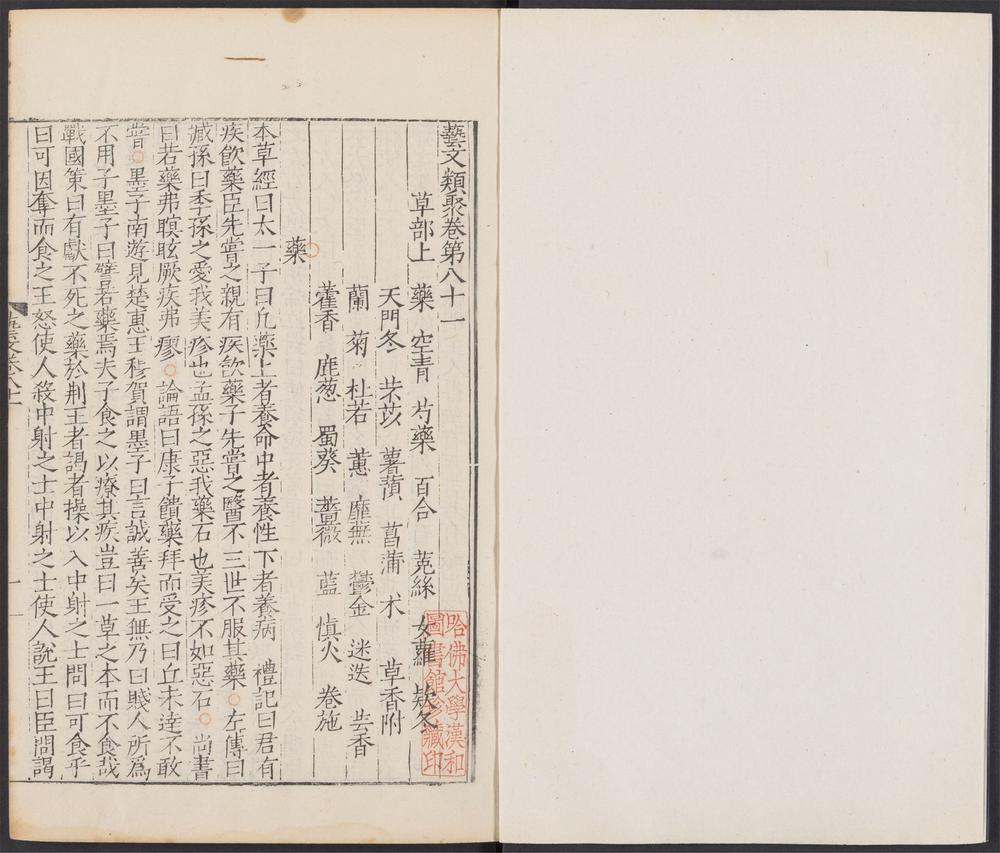 藝文類聚卷第八十一
草部上 藥 空青 芍藥 百合 菟絲 女蘿 欵冬
天門冬 芣苡 薯蕷 菖蒲 术 草香附
蘭 菊 杜若 蕙 靡蕪 鬱金 迷迭 芸香
藿香 鹿葱 蜀葵 薔薇 藍 慎火 卷施
藥
本草經曰太一子曰凢藥上者養命中者養性下者養病 禮記曰君有
疾飲藥臣先嘗之親有疾飲藥子先嘗之醫不三世不服其藥○左傳曰
臧孫曰季孫之愛我美疹也孟孫之惡我藥石也美疹不如惡石○尚書
曰若藥弗瞑眩厥疾弗瘳○論語曰康子饋藥拜而受之曰丘未達不敢
嘗○墨子南遊見楚惠王穆賀謂墨子曰言誠善矣王無乃曰賤人所爲
不用子墨子曰譬若藥焉夫子食之以療其疾豈曰一草之本而不食哉
戰國策曰有獻不死之藥於荆王者謁者操以入中射之士問曰可食乎
曰可因奪而食之王怒使人殺中射之士中射之士使人說王曰臣問謁
藝文卷八十一
一
哈佛大學漢和
圖書館珍藏印